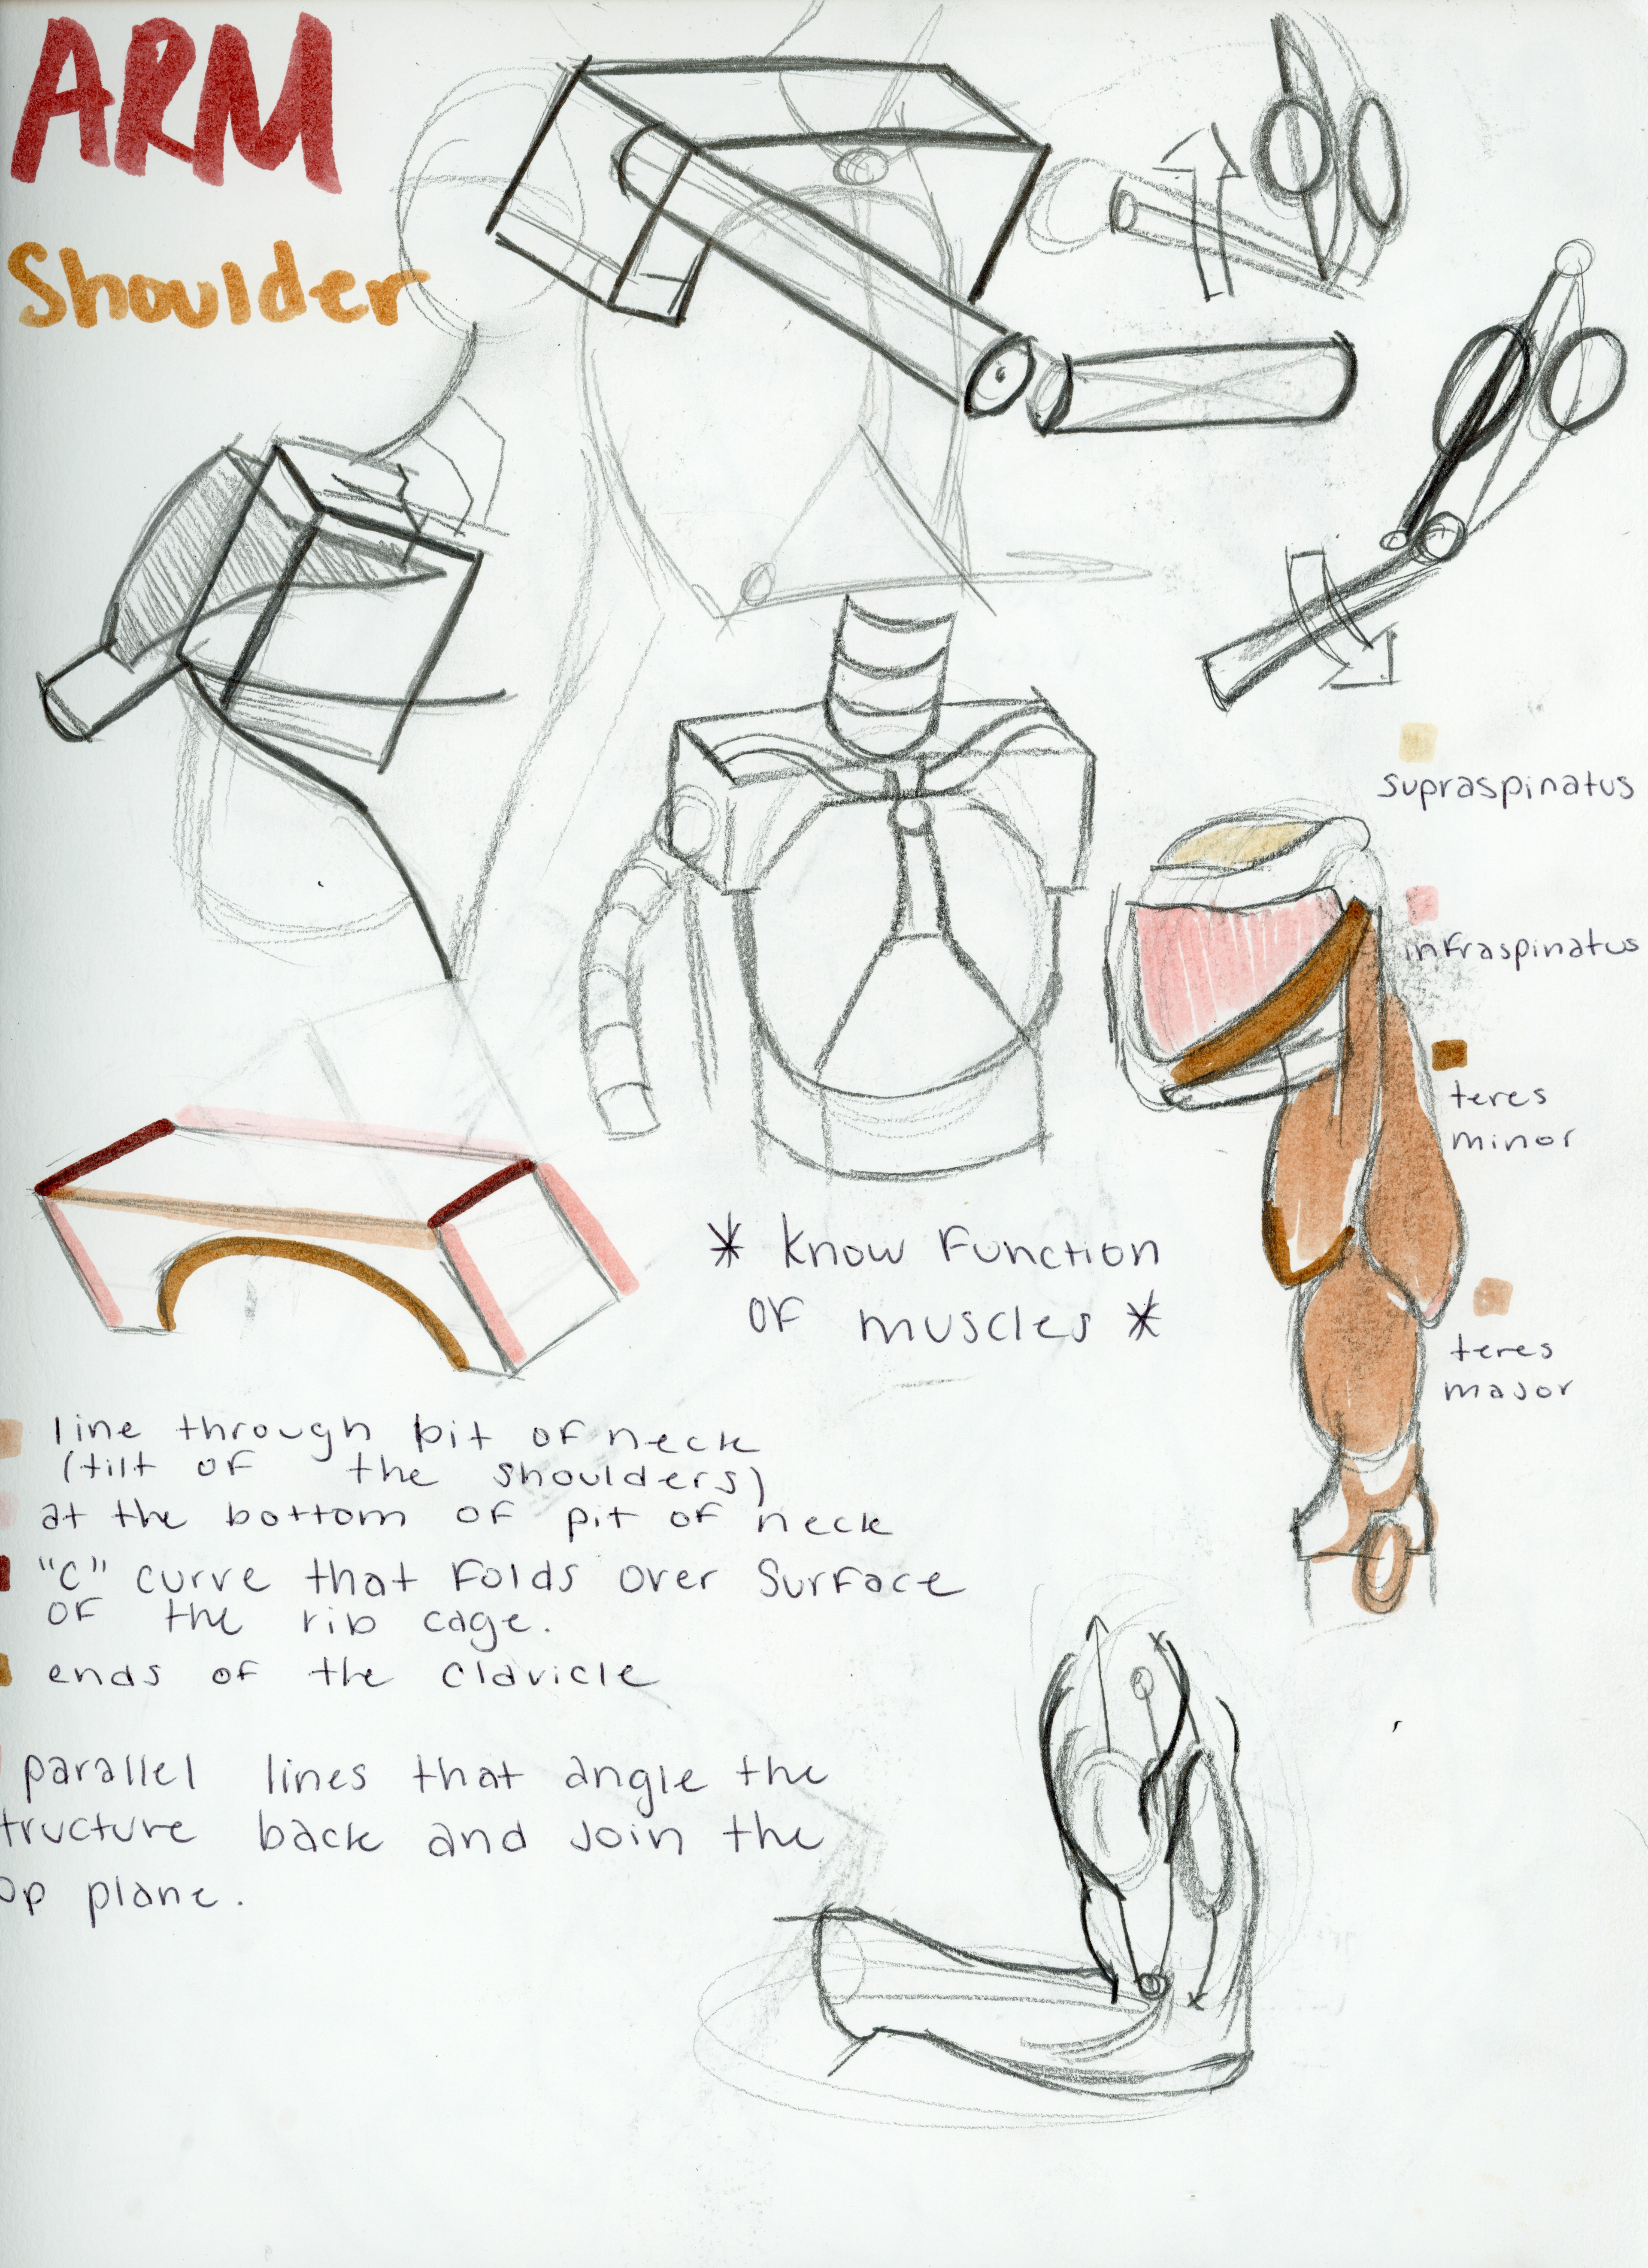 ARM
Shoulder
supraspinatus
infraspinatus
teres
minor
teres
major
* Know Function
of muscles *
line through pit of neck
(tilt of the shoulders)
at the bottom of pit of neck
"C" curve that folds over surface
of the rib cage.
ends of the clavicle
parallel lines that angle the
tructure back and join the
op plane.